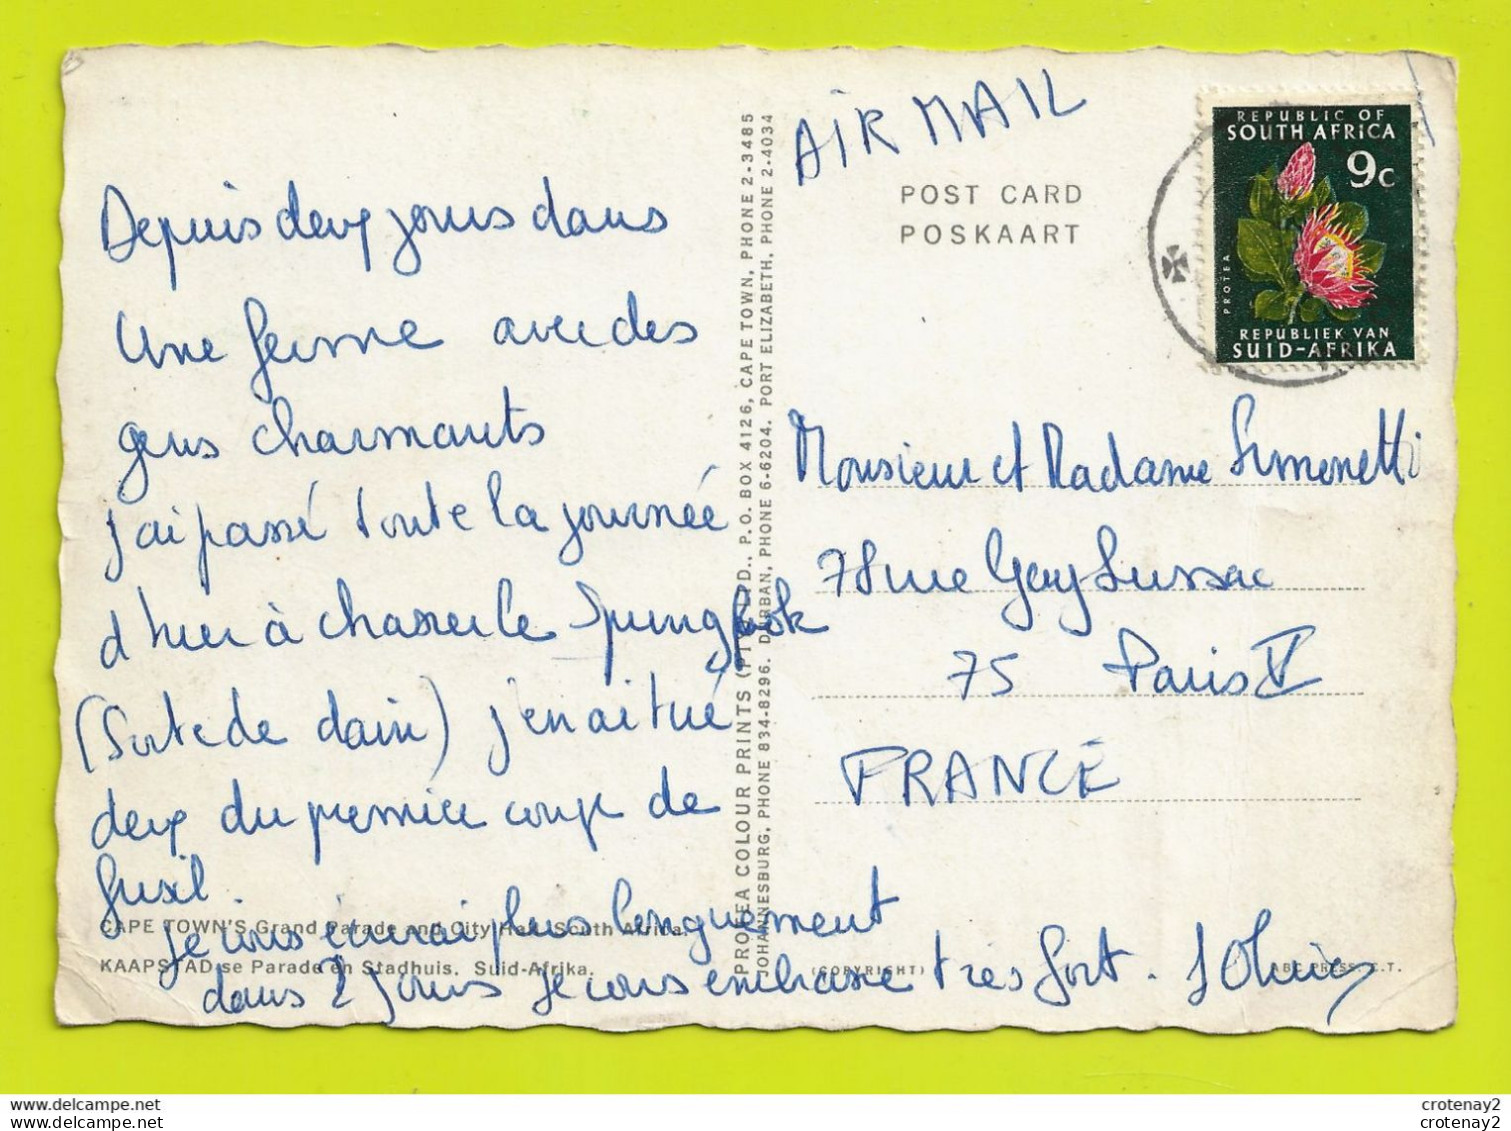 Depuis deux jours dans
une ferme avec des
gens charmants
j'ai passé toute la journée
d'hier à chasser le Springbok
(Sorte de daim) j'en ai tué
deux du premier coup de
fusil.
je vous écrirai plus longuement
dans 2 jours je vous embrasse tres fort.
CAPE TOWN'S Grand Parade and City Hall, South Africa.
KAAPSTAD se Parade en Stadhuis. Suid-Afrika.
PROTEA COLOUR PRINTS (PTY.) LTD., P.O. BOX 4126, CAPE TOWN, PHONE 2-3485
JOHANNESBURG, PHONE 834-8296. DURBAN, PHONE 6-6204. PORT ELIZABETH, PHONE 2-4034
AIR MAIL
POST CARD
POSKAART
REPUBLIC OF
SOUTH AFRICA
9c
PROTEA
REPUBLIEK VAN
SUID-AFRIKA
Monsieur et Madame Simonetti
78 rue Gay Lussac
75 Paris V
FRANCE
(COPYRIGHT)
ABC PRESS, C.T.
delcampe.net
crotenay2
crotenay2
crotenay2